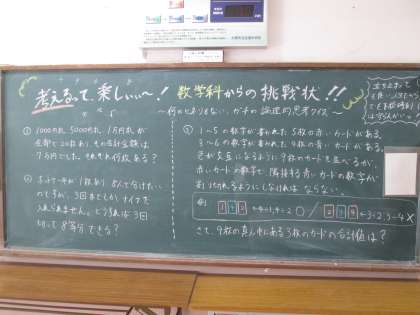 考えるって、楽しい〜! 数学科からの挑戦状!!
〜何のヒネリもない、ガチの論理的思考クイズ〜
① 1000円札、5000円札、1万円札が
全部で20枚あり、その合計金額は
7万円でした。それぞれ何枚ある?
② ホットケーキが1枚あり、8人で分けたい
のですが、3回までしかナイフを
入れられません。どうすれば3回
切って8等分できる?
③ 1〜5の数字が書かれた5枚の赤いカードがある。
3〜6の数字が書かれた4枚の青いカードがある。
色が交互になるように9枚のカードを並べるが、
赤いカードの数字で、隣接する青いカードの数字が
割り切れるようにしなければならない。
例)
1 4 2 ←4÷1, 4÷2 ○ /
2 3 4 ←3÷2, 3÷4 ×
さて、9枚の真ん中にある3枚のカードの合計値は?